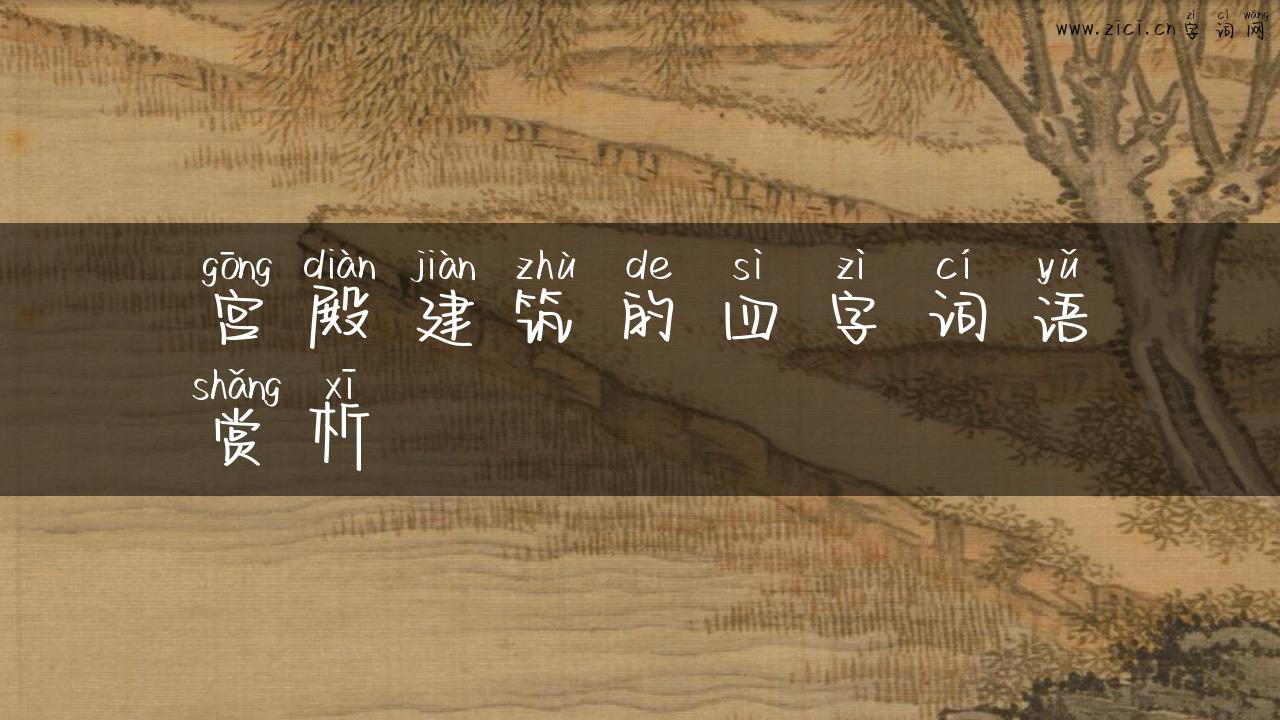 zì cí wǎng
www.zici.cn字词网
gōng diàn jiàn zhù de sì zì cí yǔ
宫殿建筑的四字词语
shǎng xī
赏析